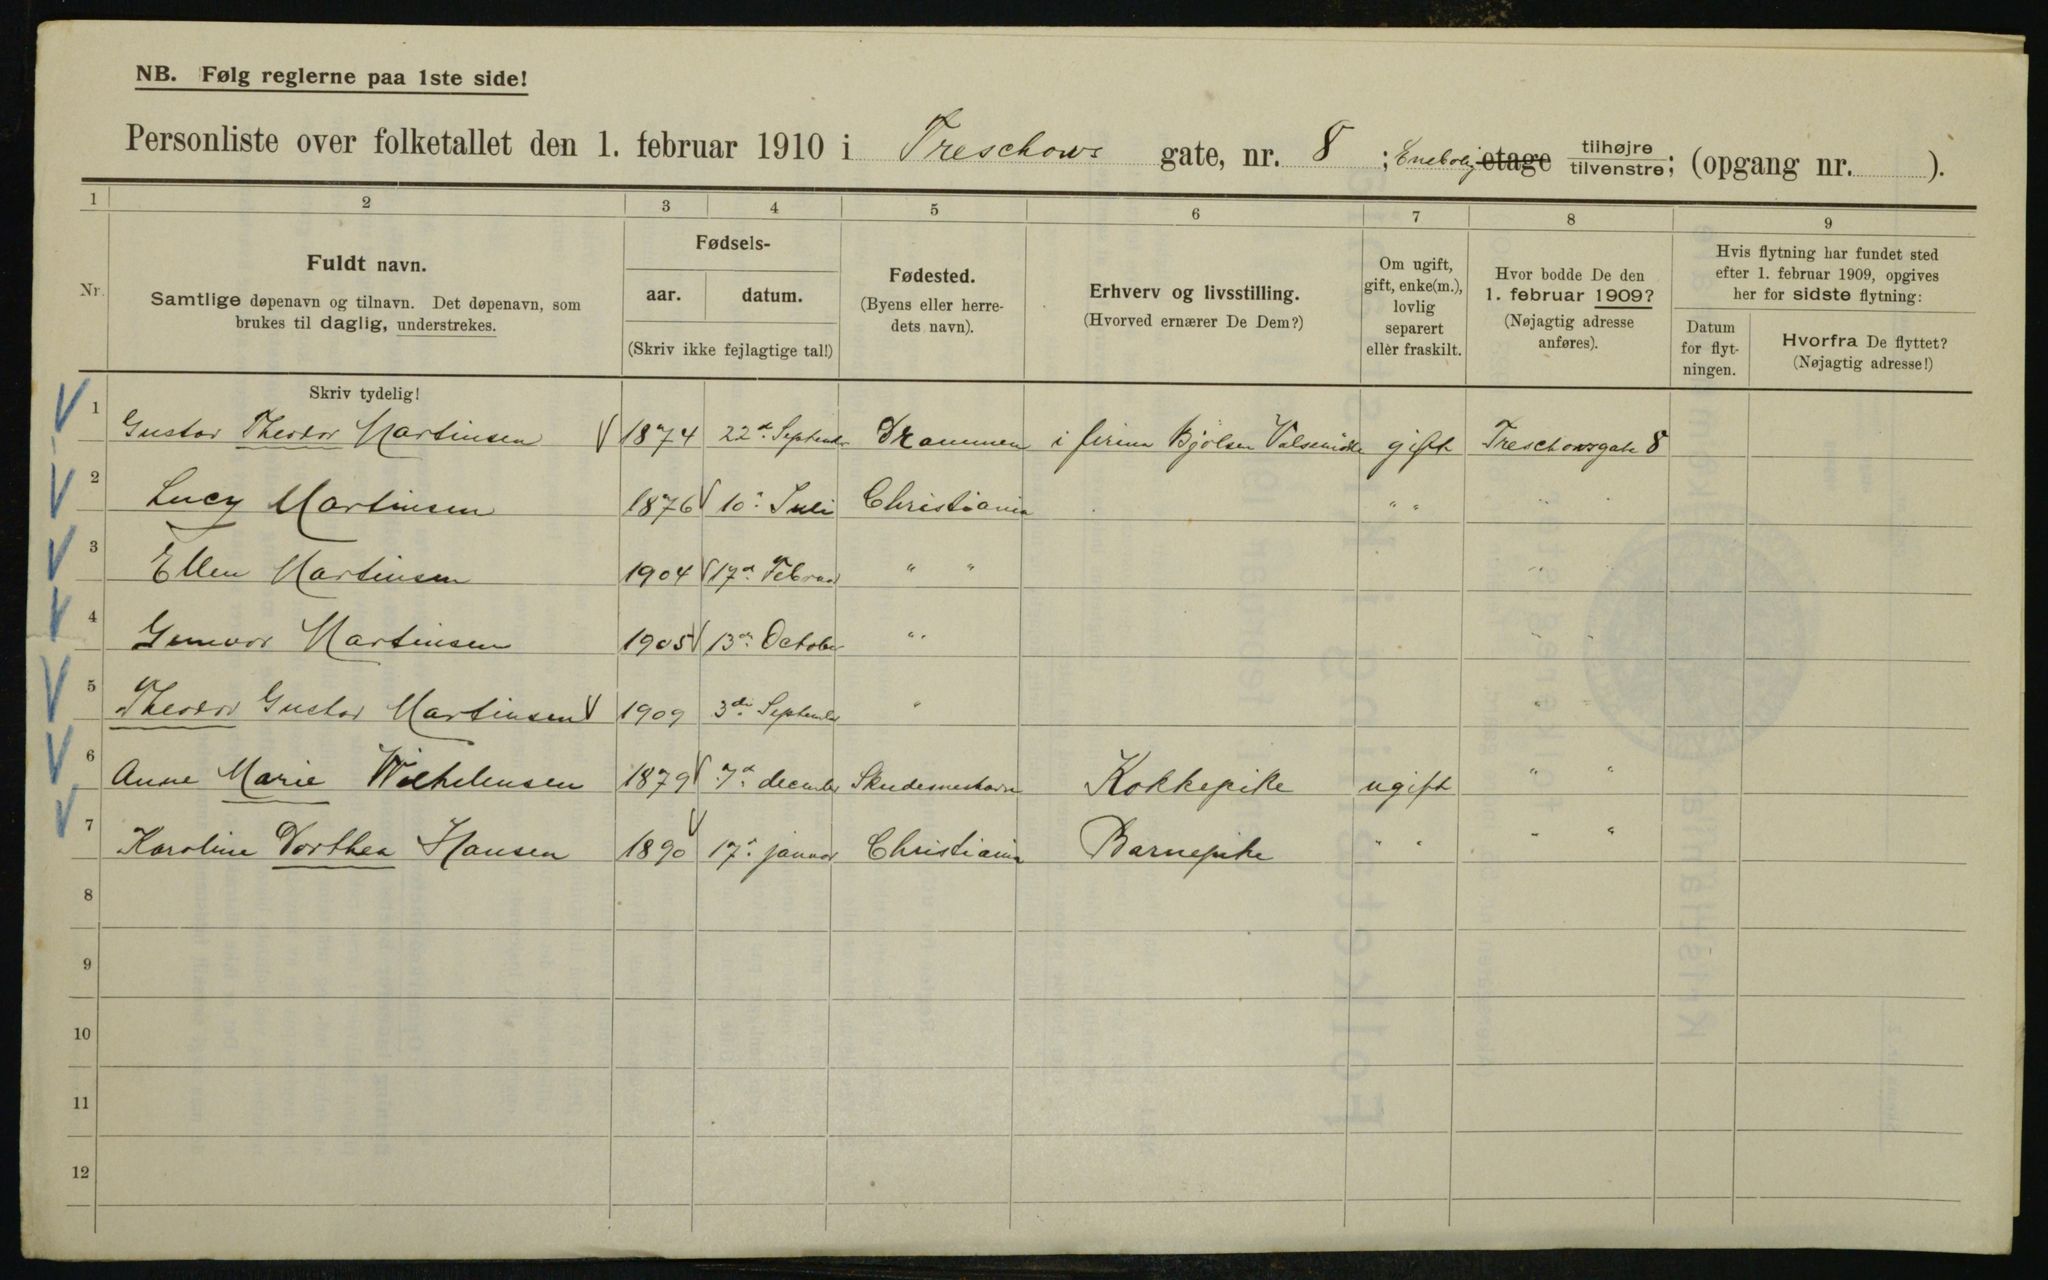 NB. Følg reglerne paa 1ste side!
Personliste over folketallet den 1. februar 1910 i Treschows gate, nr. 8 ; Enebolig etage tilhøjre tilvenstre; (opgang nr. ).
1 2 3 4 5 6 7 8 9
Nr.
Fuldt navn.
Samtlige døpenavn og tilnavn. Det døpenavn, som
brukes til daglig, understrekes.
Skriv tydelig!
Fødsels-
aar. datum.
(Skriv ikke fejlagtige tal!)
Fødested.
(Byens eller herre-
dets navn).
Erhverv og livsstilling.
(Hvorved ernærer De Dem?)
Om ugift,
gift, enke(m.),
lovlig
separert
eller fraskilt.
Hvor bodde De den
1. februar 1909?
(Nøjagtig adresse
anføres).
Hvis flytning har fundet sted
efter 1. februar 1909, opgives
her for sidste flytning:
Datum
for flyt-
ningen.
Hvorfra De flyttet?
(Nøjagtig adresse!)
1 Gustav Theodor Martinsen 1874 22d. September Drammen i firma Bjølsen Valsemølle gift Treschowsgate 8
2 Lucy Martinsen 1876 10d. Juli Christiania " " " "
3 Ellen Martinsen 1904 17d. Februar " " " "
4 Gunvor Martinsen 1905 13de October " " " "
5 Theodor Gustav Martinsen 1909 3de September " " "
6 Anne Marie Wilhelmsen 1879 7d. december Skudesneshavn Kokkepike ugift " "
7 Karoline Dorthea Hansen 1890 17d. januar Christiania Barnepike " " " "
8
9
10
11
12